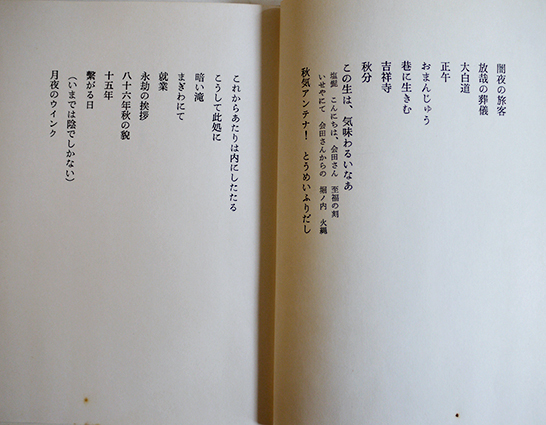 闇夜の旅客
放哉の葬儀
大白道
正午
おまんじゅう
巷に生きむ
吉祥寺
秋分
この生は、気味わるいなあ
塩髭 こんにちは、会田さん 至福の刻
いせやにて 会田さんからの 堀ノ内 火縄
秋気アンテナ! とうめいふりだし
これからあたりは内にしたたる
こうして此処に
暗い滝
まぎわにて
就業
永劫の挨拶
八十六年秋の貌
十五年
繫がる日
(いまでは陰でしかない)
月夜のウインク